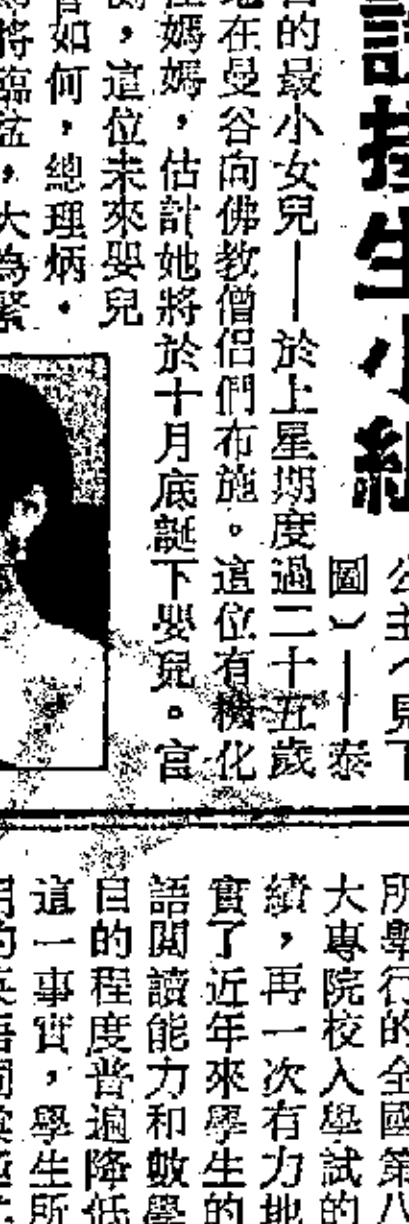 生小組
公主（見下
圖）——泰
的最小女兒——於上星期度過二十五歲
在曼谷向佛教僧侣們布施。這位有機化
媽媽，估計她將於十月底誕下嬰兒。官
，這位未來嬰兒
如何，總理炳·
將臨盆，大為緊
所舉行的全國第八
大專院校入學試的
績，再一次有力地
實了近年來學生的
語閱讀能力和數學
目的程度普遍降低
這一事實，學生所